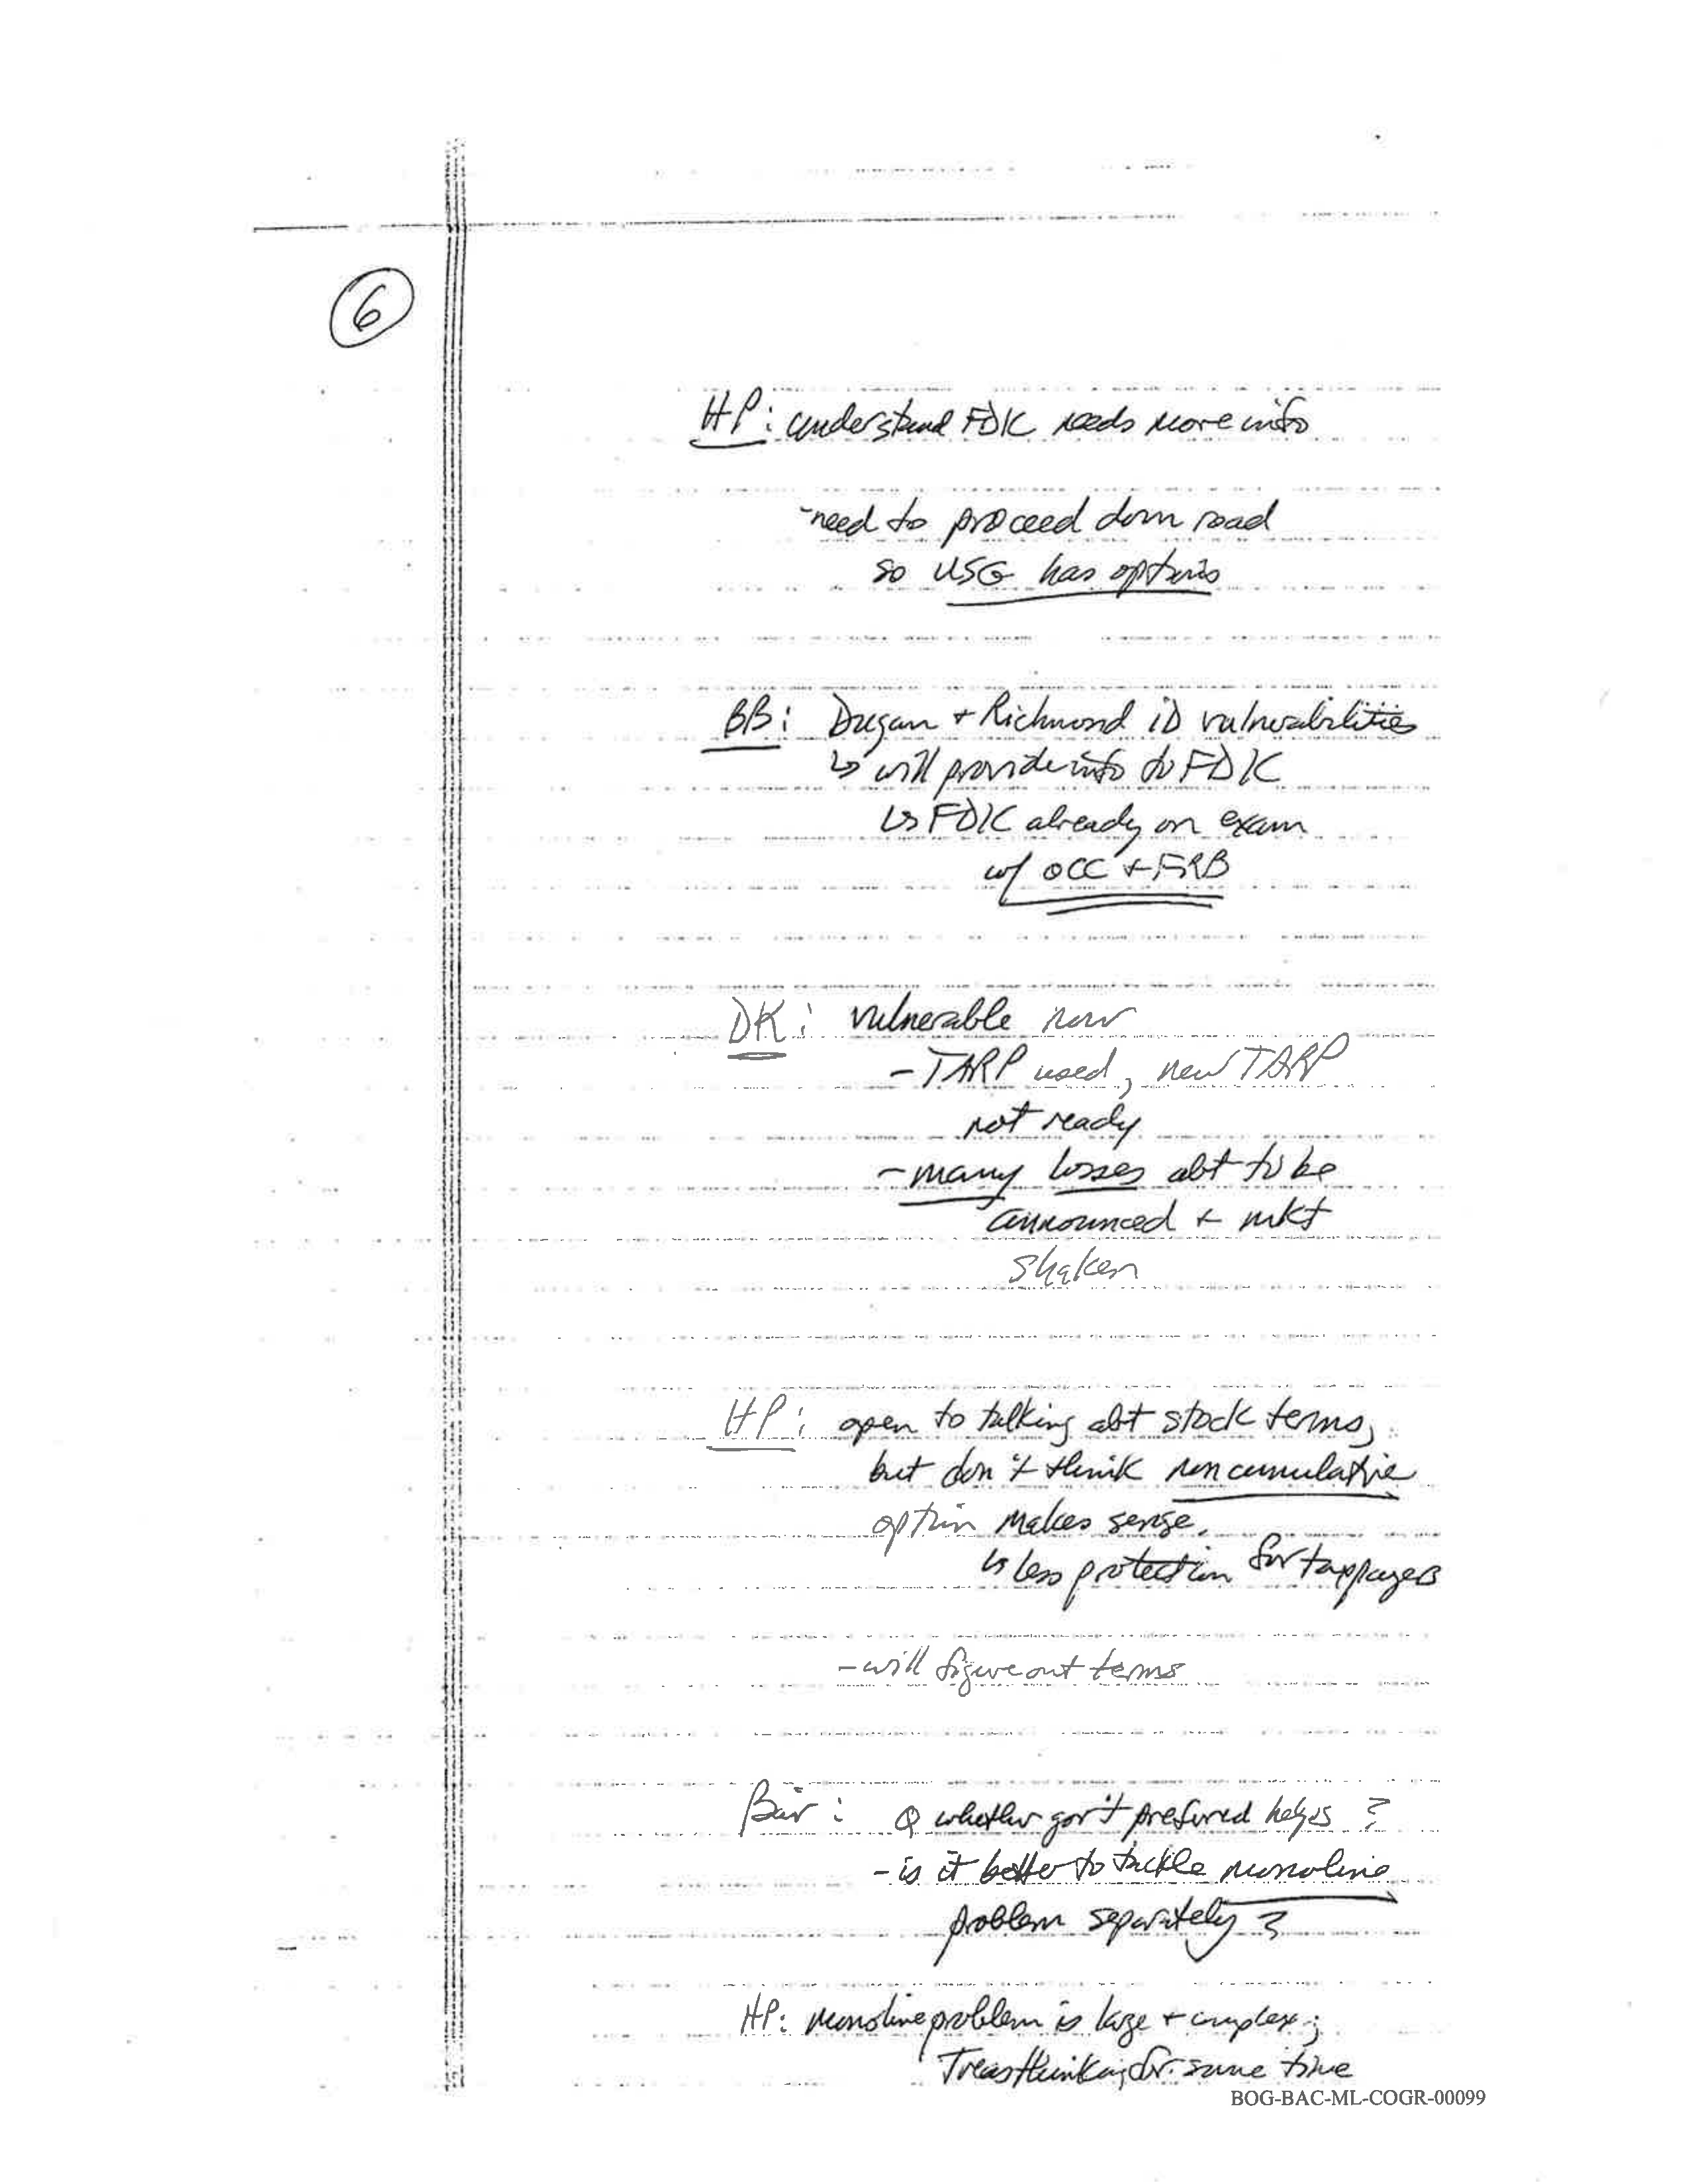 6
HP: understand FDIC needs more info
-need to proceed down road
so USG has options
BB: Dugan + Richmond ID vulnerabilities
↳ will provide info to FDIC
↳ FDIC already on exam
w/ OCC + FRB
DK: vulnerable now
- TARP used, new TARP
not ready
- many losses abt to be
announced + mkt
shaken
HP: open to talking abt stock terms,
but don't think noncumulative
option makes sense.
↳ less protection for taxpayers
- will figure out terms
Bair: Q whether gov't preferred helps?
- is it better to tackle monoline
problem separately?
HP: monoline problem is large + complex;
Treas thinking for some time
BOG-BAC-ML-COGR-00099